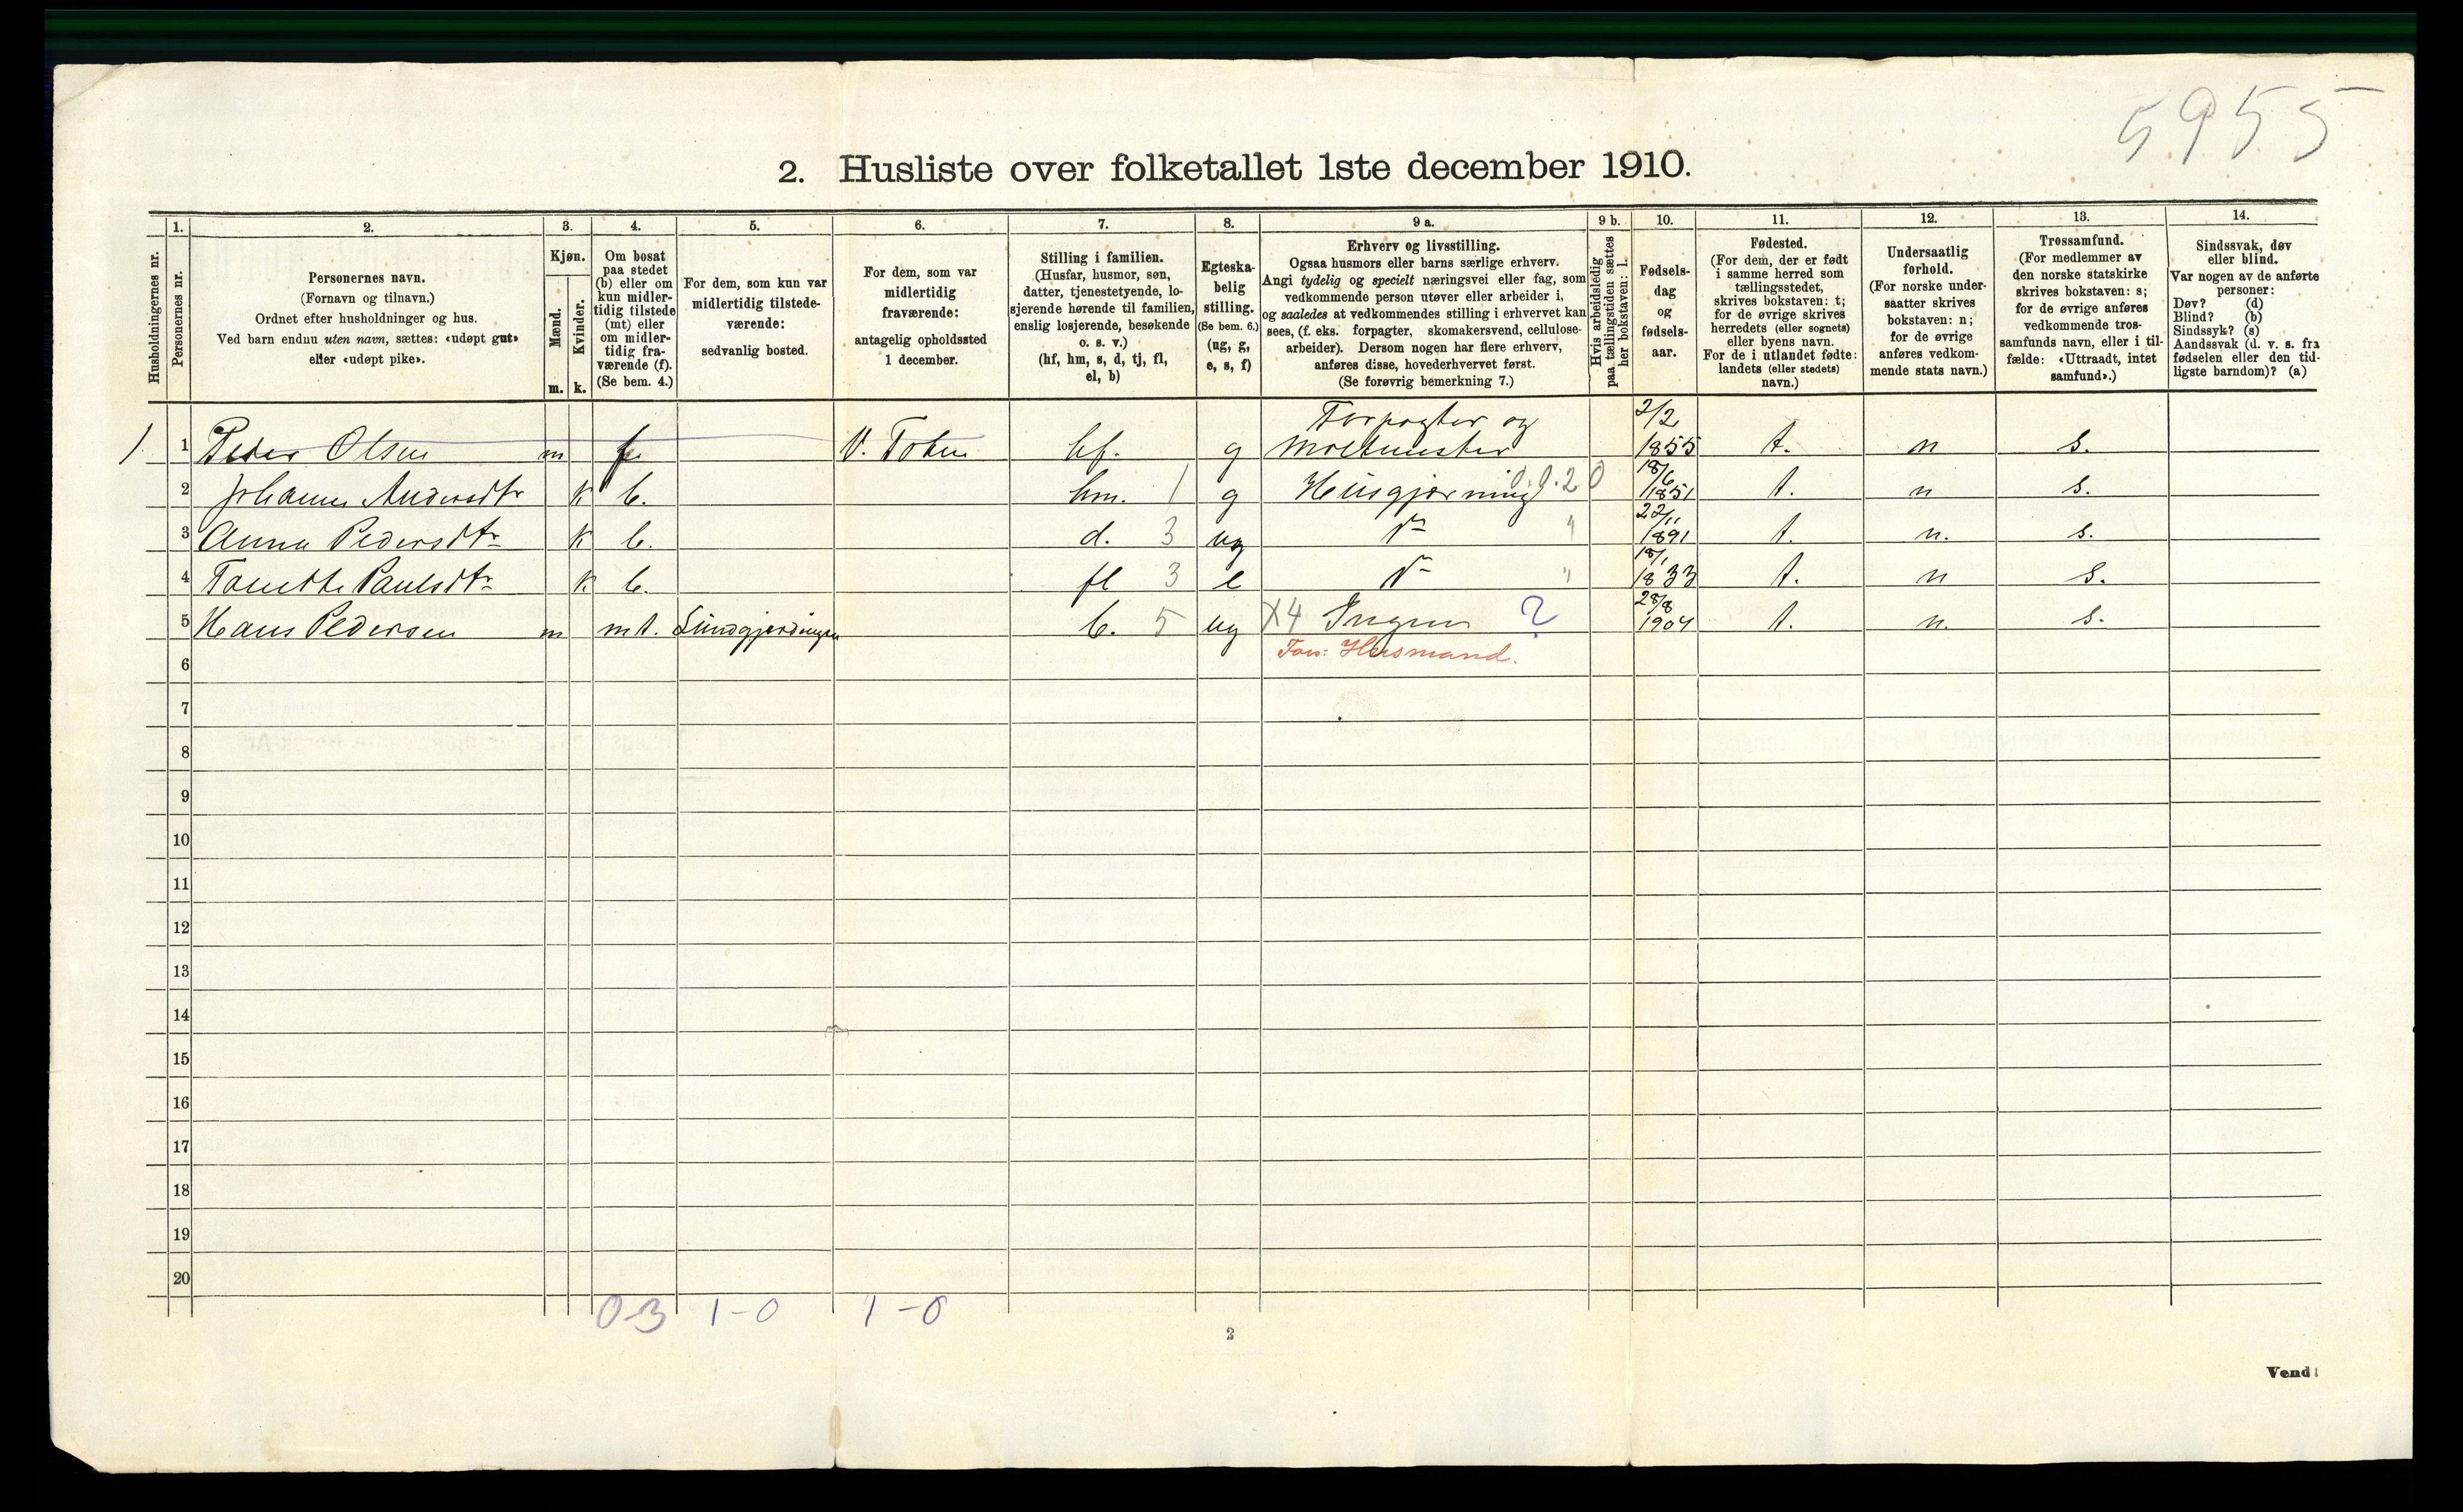 5955
2. Husliste over folketallet 1ste december 1910.
Husholdningernes nr.
1.
Personernes nr.
2.
Personernes navn.
(Fornavn og tilnavn.)
Ordnet efter husholdninger og hus.
Ved barn endnu uten navn, sættes: «udøpt gut»
eller «udøpt pike».
3.
Kjøn.
Mænd.
Kvinder.
m. k.
4.
Om bosat
paa stedet
(b) eller om
kun midler-
tidig tilstede
(mt) eller
om midler-
tidig fra-
værende (f).
(Se bem. 4.)
5.
For dem, som kun var
midlertidig tilstede-
værende:
sedvanlig bosted.
6.
For dem, som var
midlertidig
fraværende:
antagelig opholdssted
1 december.
7.
Stilling i familien.
(Husfar, husmor, søn,
datter, tjenestetyende, lo-
sjerende hørende til familien,
enslig losjerende, besøkende
o. s. v.)
(hf, hm, s, d, tj, fl,
el, b)
8.
Egteska-
belig
stilling.
(Se bem. 6.)
(ug, g,
e, s, f)
9 a.
Erhverv og livsstilling.
Ogsaa husmors eller barns særlige erhverv.
Angi tydelig og specielt næringsvei eller fag, som
vedkommende person utøver eller arbeider i,
og saaledes at vedkommendes stilling i erhvervet kan
sees, (f. eks. forpagter, skomakersvend, cellulose-
arbeider). Dersom nogen har flere erhverv,
anføres disse, hovederhvervet først.
(Se forøvrig bemerkning 7.)
9 b.
Hvis arbeidsledig
paa tællingstiden sættes
her bokstaven: l.
10.
Fødsels-
dag
og
fødsels-
aar.
11.
Fødested.
(For dem, der er født
i samme herred som
tællingsstedet,
skrives bokstaven: t;
for de øvrige skrives
herredets (eller sognets)
eller byens navn.
For de i utlandet fødte:
landets (eller stedets)
navn.)
12.
Undersaatlig
forhold.
(For norske under-
saatter skrives
bokstaven: n;
for de øvrige
anføres vedkom-
mende stats navn.)
13.
Trossamfund.
(For medlemmer av
den norske statskirke
skrives bokstaven: s;
for de øvrige anføres
vedkommende tros-
samfunds navn, eller i til-
fælde: «Uttraadt, intet
samfund».)
14.
Sindssvak, døv
eller blind.
Var nogen av de anførte
personer:
Døv? (d)
Blind? (b)
Sindssyk? (s)
Aandssvak (d. v. s. fra
fødselen eller den tid-
ligste barndom)? (a)
Forpagter og 2/2
1 1 Peder Olsen m f V. Toten hf. g 1855 t. n s.
18/6
2 Johanne Andersdtr k b. hm. 1 g Husgjerning 0.0.20 1851 t. n s.
22/11
3 Anna Pedersdtr k b. d. 3 ug Do " 1891 t. n. s.
18/1
4 Paulsdtr k b. fl 3 e Do " 1833 t. n s.
28/8
5 Hans Pedersen m mt. b. 5 ug X4 Ingen ? 1904 t. n. s.
6 Fors: Husmand.
7
8
9
10
11
12
13
14
15
16
17
18
19
20
0-3 1-0 1-0
2
Vend!